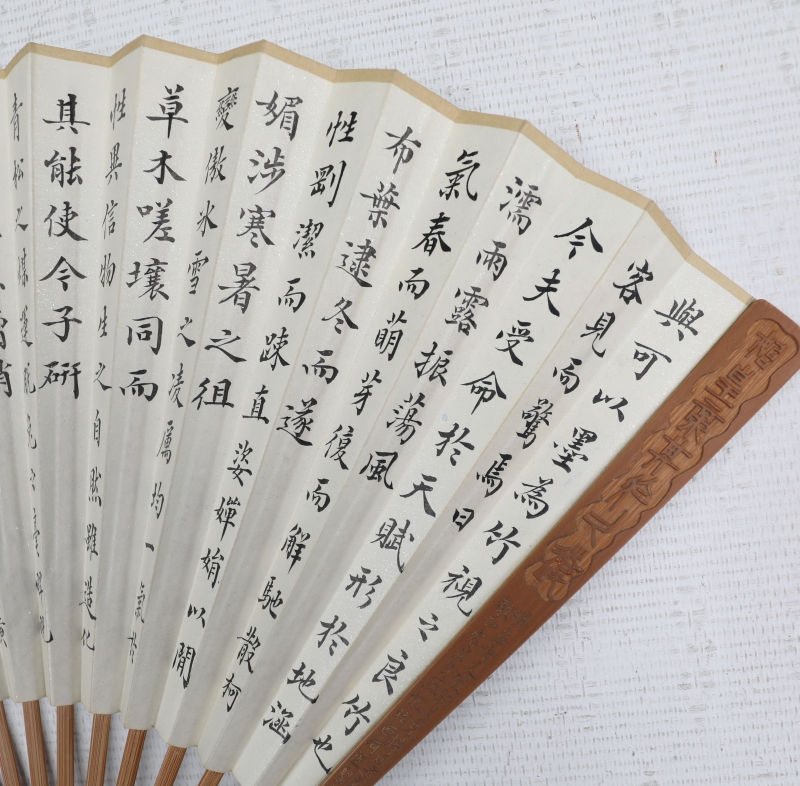 與可以墨為竹視之良竹也
客見而驚焉曰
今夫受命於天賦形於地涵
濡雨露振蕩風
氣春而萌芽復而解馳散柯
布葉逮冬而遂
性剛潔而疎直姿嬋娟以閒
媚涉寒暑之徂
變傲氷雪之凌厲均一氣於
草木嗟壤同而
性異信物生之自然雖造化
其能使今子研
青松之煤運脫兔之毫睥睨